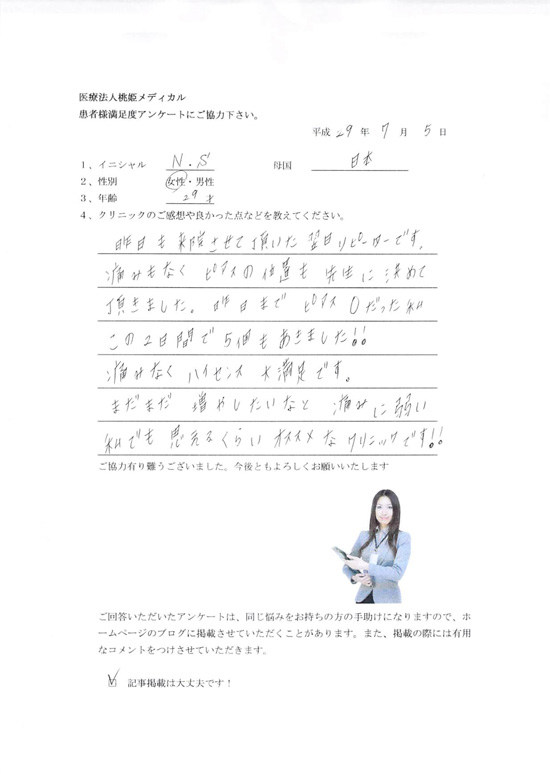 医療法人桃姫メディカル
患者様満足度アンケートにご協力下さい。
平成 29 年 7 月 5 日
1、イニシャル N.S 母国 日本
2、性別 女性・男性
3、年齢 29才
4、クリニックのご感想や良かった点などを教えてください。
昨日も来院させて頂いた翌日リピーターです。
痛みもなく ピアスの位置も 先生に決めて
頂きました。昨日まで ピアス 0だった私
この2日間で5個もあきました!!
痛みなく ハイセンス 大満足です。
まだまだ 増やしたいなと 痛みに弱い
私でも思えるくらい オススメなクリニックです!!
ご協力有り難うございました。今後ともよろしくお願いいたします
ご回答いただいたアンケートは、同じ悩みをお持ちの方の手助けになりますので、ホ
ームページのブログに掲載させていただくことがあります。また、掲載の際には有用
なコメントをつけさせていただきます。
☑ 記事掲載は大丈夫です！